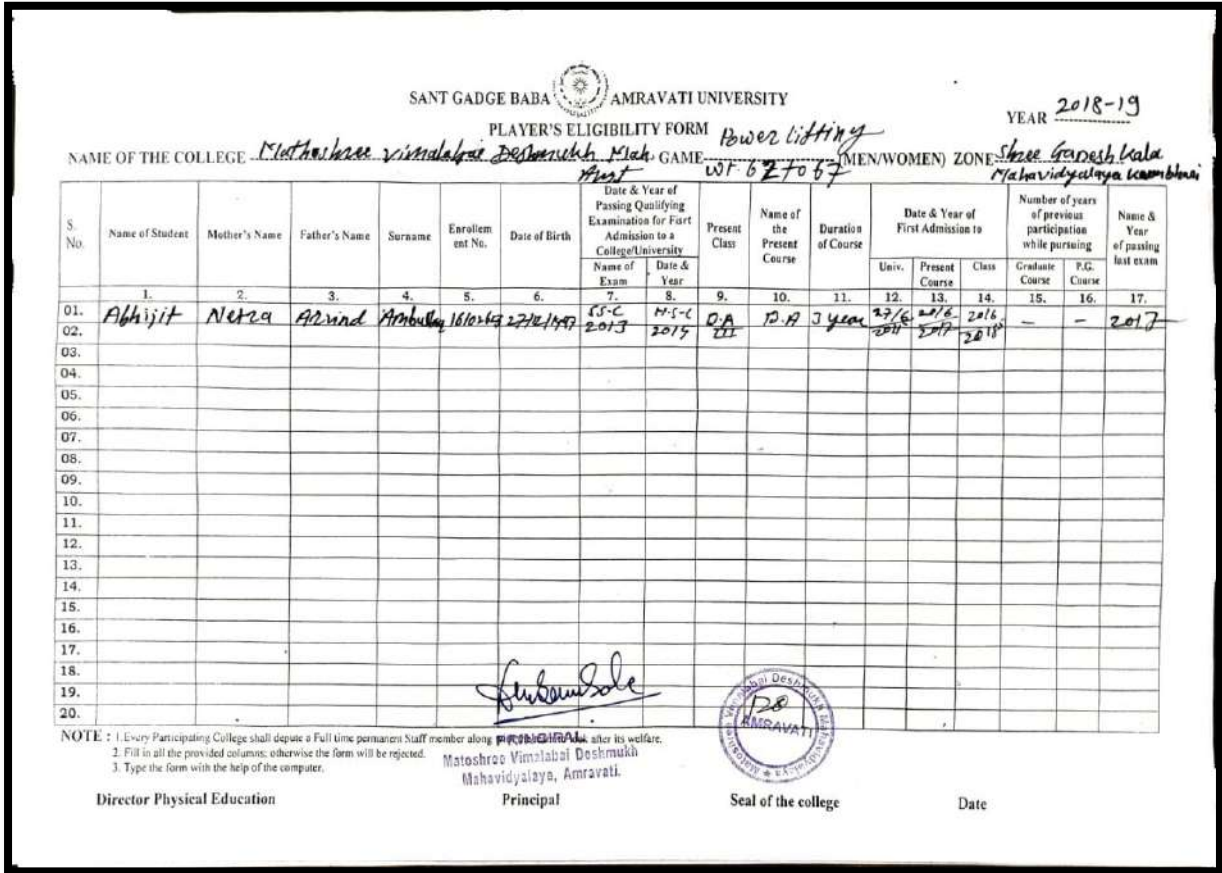 SANT GADGE BABA AMRAVATI UNIVERSITY
YEAR 2018-19
PLAYER'S ELIGIBILITY FORM
NAME OF THE COLLEGE Mathoshree Vimalabai Deshmukh Mah. Amt GAME Power lifting wt. 62 to 67 (MEN/WOMEN) ZONE Shree Ganesh Kala Mahavidyalaya
S. No.
Name of Student
Mother's Name
Father's Name
Surname
Enrollem ent No.
Date of Birth
Date & Year of Passing Qualifying Examination for Fisrt Admission to a College/University
Name of Exam
Date & Year
Present Class
Name of the Present Course
Duration of Course
Date & Year of First Admission to
Univ.
Present Course
Class
Number of years of previous participation while pursuing
Graduate Course
P.G. Course
Name & Year of passing last exam
1. 2. 3. 4. 5. 6. 7. 8. 9. 10. 11. 12. 13. 14. 15. 16. 17.
01. Abhijit Netra Arvind S.S.C 2013 H.S.C III B.A 3 year 2016 2017 2016 2018 – – 2017
02.
03.
04.
05.
06.
07.
08.
09.
10.
11.
12.
13.
14.
15.
16.
17.
18.
19.
20.
NOTE : 1. Every Participating College shall depute a Full time permanent Staff member along after its welfare.
2. Fill in all the provided columns; otherwise the form will be rejected.
3. Type the form with the help of the computer.
PRINCIPAL
Matoshree Vimalabai Deshmukh
Mahavidyalaya, Amravati.
Matoshree Vimalabai Deshmukh Mahavidyalaya
AMRAVATI
Director Physical Education Principal Seal of the college Date